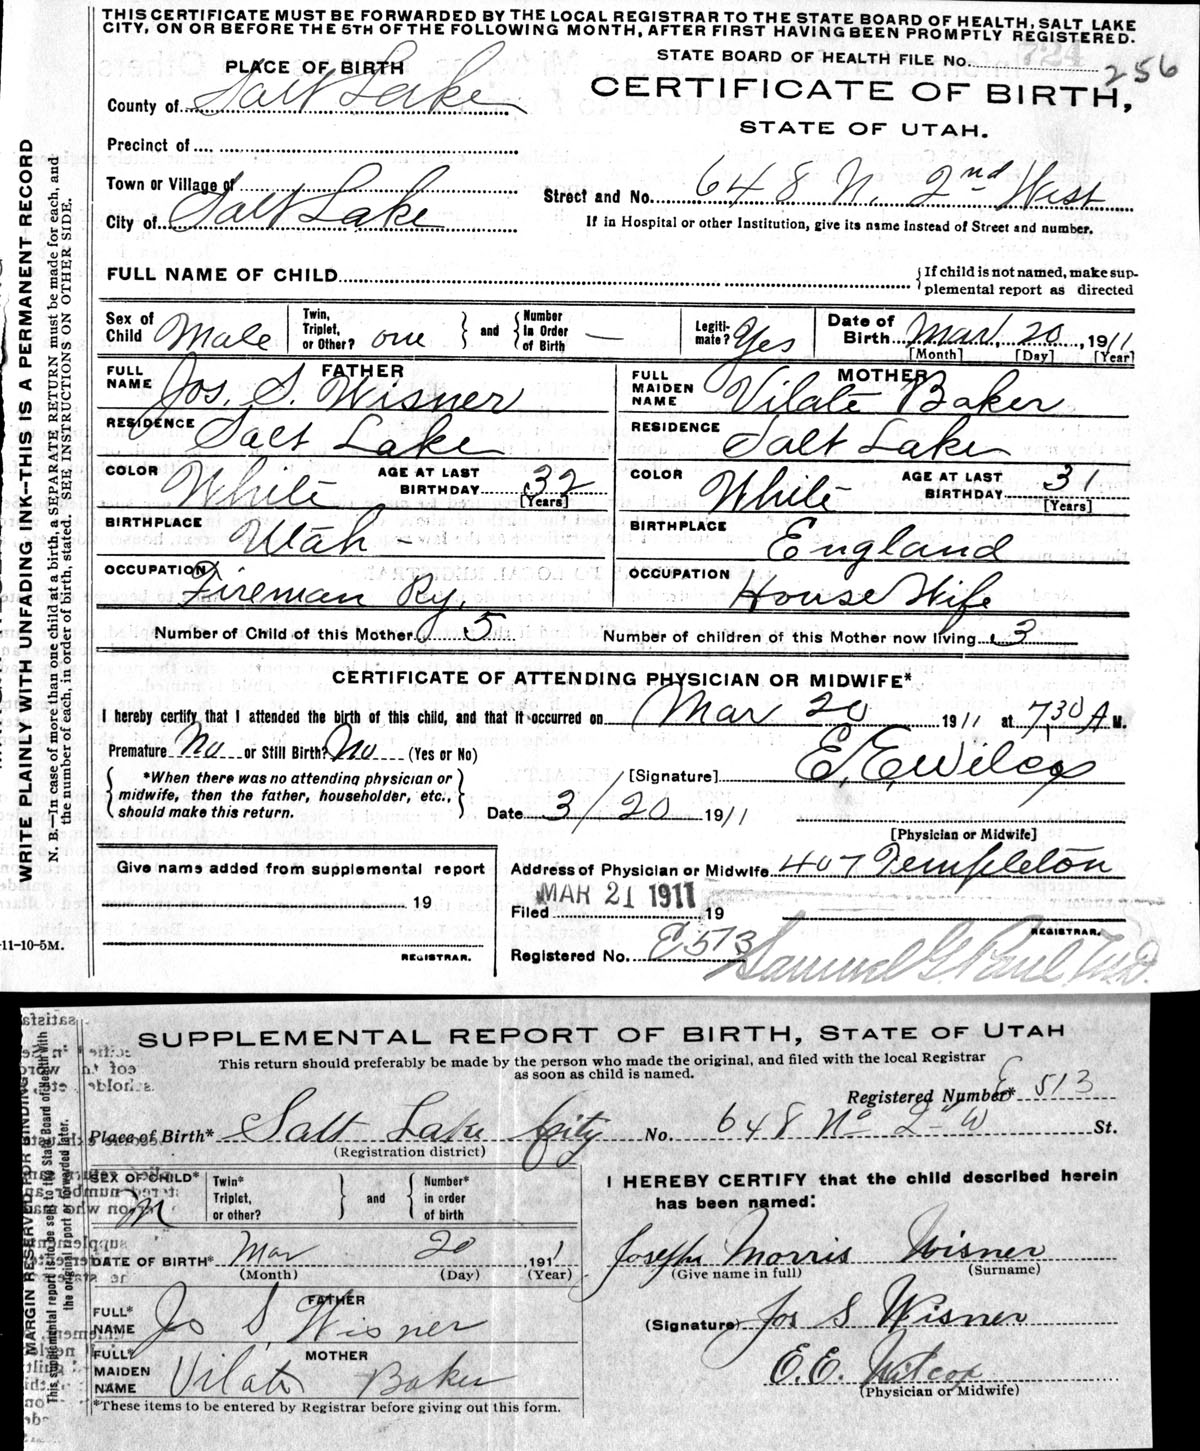 THIS CERTIFICATE MUST BE FORWARDED BY THE LOCAL REGISTRAR TO THE STATE BOARD OF HEALTH, SALT LAKE
CITY, ON OR BEFORE THE 5TH OF THE FOLLOWING MONTH, AFTER FIRST HAVING BEEN PROMPTLY REGISTERED.
STATE BOARD OF HEALTH FILE No. 724 256
PLACE OF BIRTH
CERTIFICATE OF BIRTH,
STATE OF UTAH.
County of Salt Lake
Precinct of
Town or Village of
Street and No. 648 N. 2nd West
City of Salt Lake
If in Hospital or other Institution, give its name Instead of Street and number.
FULL NAME OF CHILD
{If child is not named, make sup-
plemental report as directed
Sex of Child Male
Twin, Triplet, or Other? one } and { Number In Order of Birth —
Legiti-mate? Yes
Date of Birth Mar 20, 1911
[Month] [Day] [Year]
FATHER
FULL NAME Jos. S. Wisner
MOTHER
FULL MAIDEN NAME Vilate Baker
RESIDENCE Salt Lake
RESIDENCE Salt Lake
COLOR White AGE AT LAST BIRTHDAY 32 [Years]
COLOR White AGE AT LAST BIRTHDAY 31 [Years]
BIRTHPLACE Utah -
BIRTHPLACE England
OCCUPATION Fireman Ry.
OCCUPATION House Wife
Number of Child of this Mother 5
Number of children of this Mother now living 3
CERTIFICATE OF ATTENDING PHYSICIAN OR MIDWIFE*
I hereby certify that I attended the birth of this child, and that it occurred on Mar 20 1911 at 7 30 A M.
Premature No or Still Birth? No (Yes or No)
*When there was no attending physician or
midwife, then the father, householder, etc.,
should make this return.
[Signature] E. E. Wilcox
Date 3/20 1911
[Physician or Midwife]
Give name added from supplemental report
19
REGISTRAR.
Address of Physician or Midwife 407 Templeton
Filed MAR 21 1911 19
REGISTRAR.
Registered No. E513
Samuel G. Paul M.D.
11-10-5M.
WRITE PLAINLY WITH UNFADING INK--THIS IS A PERMANENT RECORD
N. B.—In case of more than one child at a birth, a SEPARATE RETURN must be made for each, and
the number of each, in order of birth, stated. SEE INSTRUCTIONS ON OTHER SIDE.
SUPPLEMENTAL REPORT OF BIRTH, STATE OF UTAH
This return should preferably be made by the person who made the original, and filed with the local Registrar
as soon as child is named.
Registered Number* E 513
Place of Birth* Salt Lake City No. 648 No 2 W St.
(Registration district)
SEX OF CHILD* M
Twin* Triplet, or other? } and { Number* in order of birth
I HEREBY CERTIFY that the child described herein
has been named:
DATE OF BIRTH* Mar 20 1911
(Month) (Day) (Year)
Joseph Morris Wisner
(Give name in full) (Surname)
FATHER
FULL* NAME Jos S. Wisner
(Signature) Jos S Wisner
MOTHER
FULL* MAIDEN NAME Vilate Baker
E. E. Wilcox
(Physician or Midwife)
*These items to be entered by Registrar before giving out this form.
MARGIN RESERVED FOR BINDING
This supplemental report is to be sent to the State Board of Health with
the original report or forwarded later.